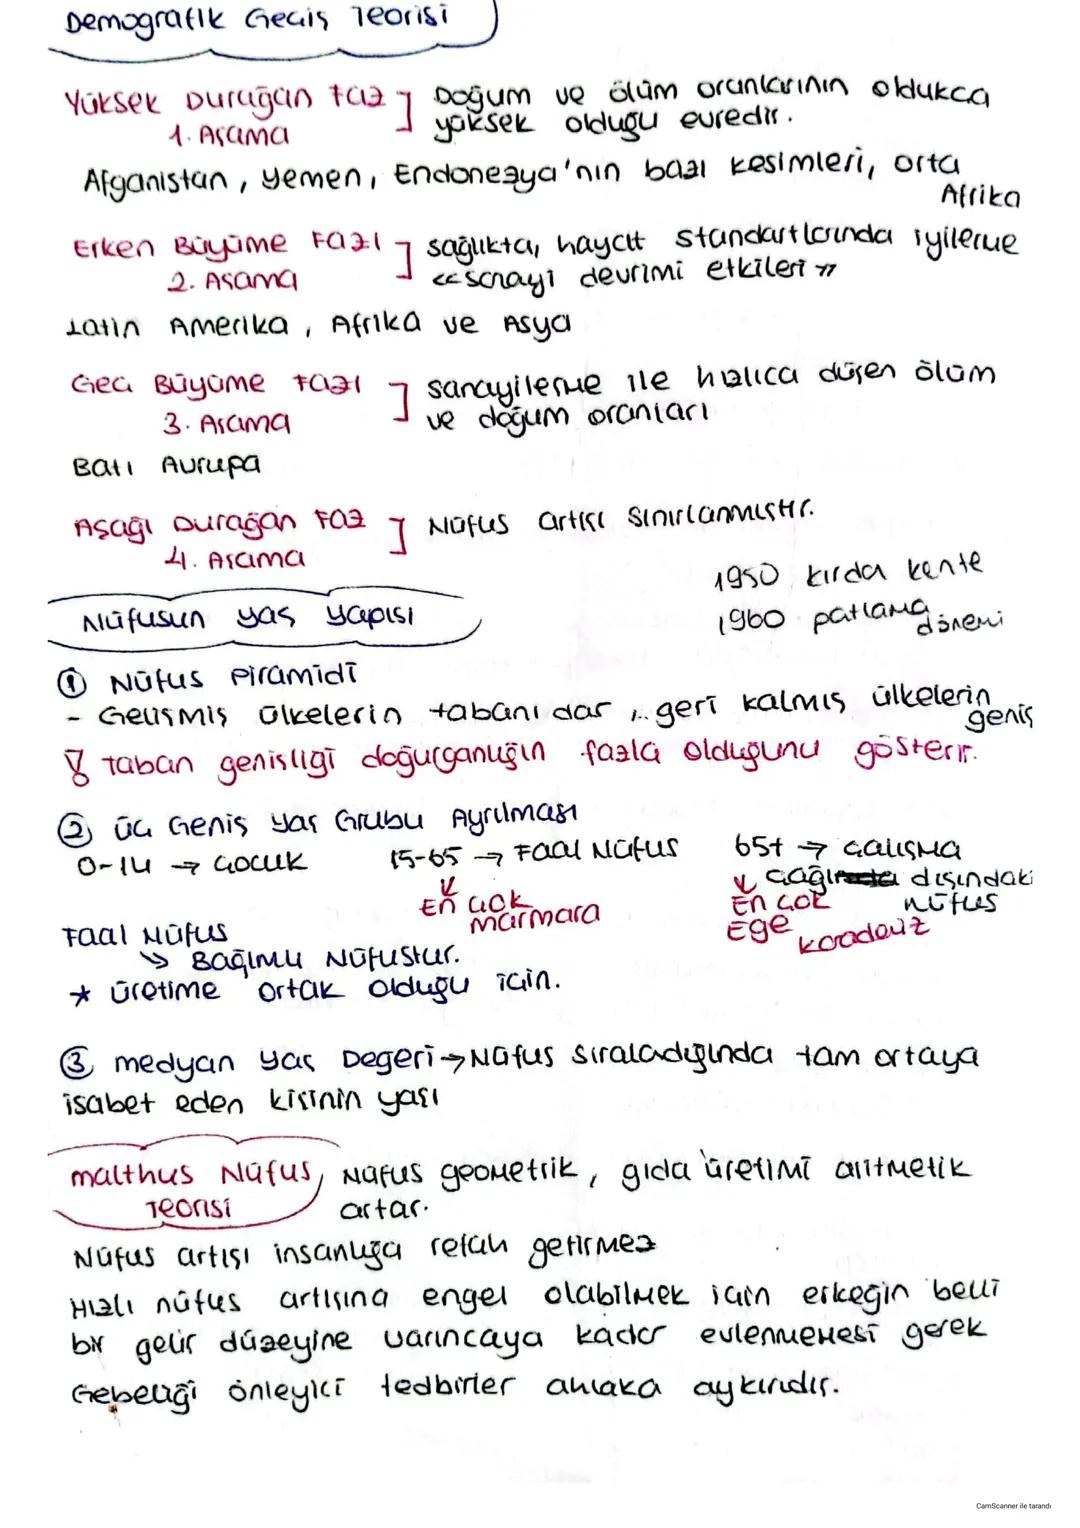 Demografik Geçiş Teorisi
Yüksek Durağan Faz ] Doğum ve ölüm oranlarının oldukça
1. Aşama yüksek olduğu evredir.
Afganistan, Yemen, Endonezya'nın bazı kesimleri, orta
Afrika
Erken Büyüme Fazı ] sağlıkta, hayat standartlarında iyileşme
2. Aşama <<sanayi devrimi etkileri>>
Latin Amerika, Afrika ve Asya
Geç Büyüme Fazı ] sanayileşme ile hızlıca düşen ölüm
3. Aşama ve doğum oranları
Batı Avrupa
Aşağı Durağan Faz ] Nüfus artışı sınırlanmıştır.
4. Aşama
1950 kırda kente
Nüfusun yaş yapısı
1960 patlama dönemi
① Nüfus Piramidi
- Gelişmiş ülkelerin tabanı dar, geri kalmış ülkelerin
geniş
! Taban genişliği doğurganlığın fazla olduğunu gösterir.
② Üç Geniş Yaş Grubu Ayrılması
0-14 → çocuk 15-65 → Faal Nüfus 65+ → çalışma
çağı dışındaki
nüfus
En çok Marmara En çok Ege Karadeniz
Faal Nüfus
↳ Bağımlı Nüfustur.
* üretime ortak olduğu için.
③ medyan yaş Değeri → Nüfus sıraladığında tam ortaya
isabet eden kişinin yaşı
malthus Nüfus, Nüfus geometrik, gıda üretimi aritmetik
Teorisi artar.
Nüfus artışı insanlığa refah getirmez
Hızlı nüfus artışına engel olabilmek için erkeğin belli
bir gelir düzeyine varıncaya kadar evlenmemesi gerek
Gebeliği önleyici tedbirler ahlaka aykırıdır.
CamScanner ile tarandı